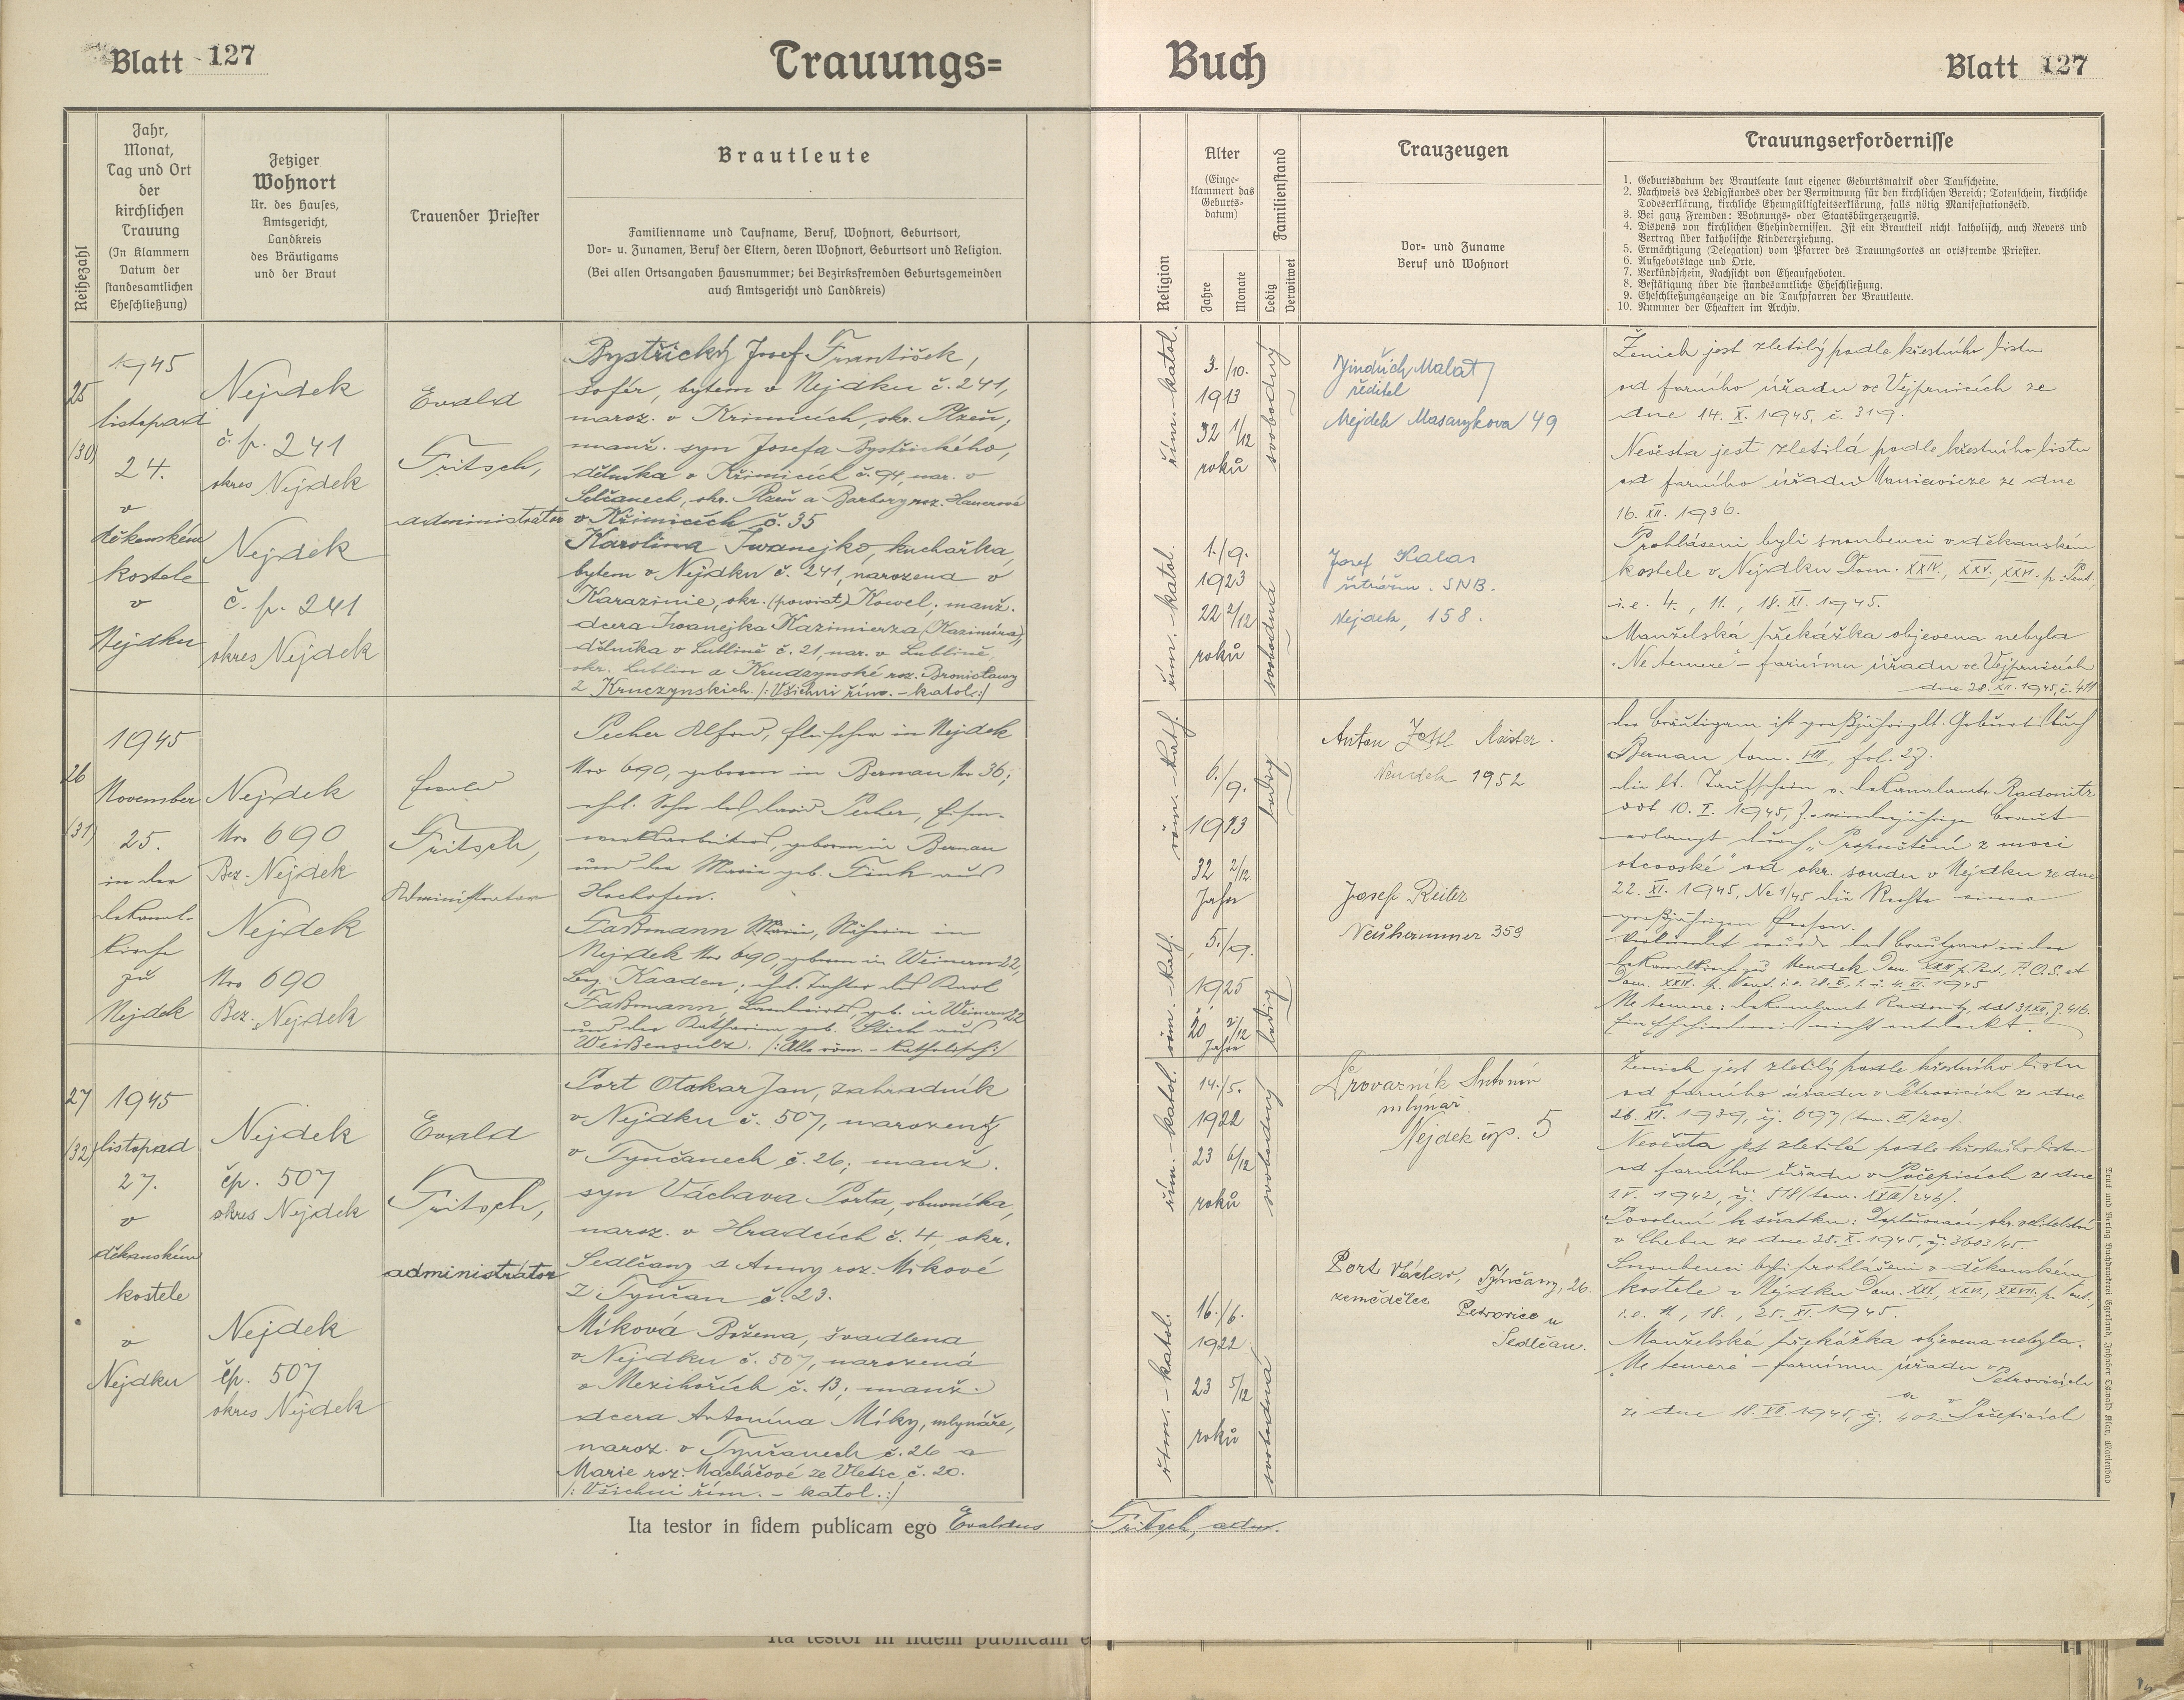 Blatt 127
Trauungs=
Buch
Blatt 127
Reihezahl
Jahr,
Monat,
Tag und Ort
der
kirchlichen
Trauung
(In Klammern
Datum der
standesamtlichen
Eheschließung)
Jetziger
Wohnort
Nr. des Hauses,
Amtsgericht,
Landkreis
des Bräutigams
und der Braut
Trauender Priester
Brautleute
Familienname und Taufname, Beruf, Wohnort, Geburtsort,
Vor= u. Zunamen, Beruf der Eltern, deren Wohnort, Geburtsort und Religion.
(Bei allen Ortsangaben Hausnummer; bei Bezirksfremden Geburtsgemeinden
auch Amtsgericht und Landkreis)
Religion
Alter
(Einge=
klammert das
Geburts=
datum)
Jahre
Monate
Familienstand
Ledig
Verwitwet
Trauzeugen
Vor= und Zuname
Beruf und Wohnort
Trauungserfordernisse
1. Geburtsdatum der Brautleute laut eigener Geburtsmatrik oder Taufscheine.
2. Nachweis des Ledigstandes oder der Verwitwung für den kirchlichen Bereich: Totenschein, kirchliche
Todeserklärung, kirchliche Eheungültigkeitserklärung, falls nötig Manifestationseid.
3. Bei ganz Fremden: Wohnungs= oder Staatsbürgerzeugnis.
4. Dispens von kirchlichen Ehehindernissen. Ist ein Brautteil nicht katholisch, auch Revers und
Vertrag über katholische Kindererziehung.
5. Ermächtigung (Delegation) vom Pfarrer des Trauungsortes an ortsfremde Priester.
6. Aufgebotstage und Orte.
7. Verkündschein, Nachsicht von Eheaufgeboten.
8. Bestätigung über die standesamtliche Eheschließung.
9. Eheschließungsanzeige an die Taufpfarren der Brautleute.
10. Nummer der Eheakten im Archiv.
25
(30)
1945
listopad
24.
v
děkanském
kostele
v
Nejdku
Nejdek
č. p. 241
okres Nejdek
Nejdek
č. p. 241
okres Nejdek
Evald
Fritsch,
administrátor
Bystřický Josef František,
šofér, bytem v Nejdku č. 241,
naroz. v Křimicích, okr. Plzeň,
manž. syn Josefa Bystřického,
dělníka v Křimicích č. 94, nar. v
okr. Plzeň a Barbory roz. Hauerové
v Křimicích č. 35
Karolina Iwanejko, kuchařka,
bytem v Nejdku č. 241, narozena v
Karazinie, okr. (powiat) Kowel, manž.
dcera Iwanejka Kazimierza (Kazimíra),
dělníka v Lublině č. 21, nar. v Lublině,
okr. Lublin a roz. Bronisławy
z Kruczynskich. /: Všichni řím. - katol. :/
řím. - katol.
3./10.
1913
32 1/12
roků
svobodný
řím. - katol.
1./9.
1923
22 2/12
roků
svobodná
Jindřich Malat
ředitel
Nejdek Masarykova 49
Josef Kalas
strážm. SNB.
Nejdek, 158.
Ženich jest zletilý podle křestního listu
od farního úřadu ve Vejprnicích ze
dne 14. X. 1945, č. 319.
Nevěsta jest zletilá podle křestního listu
od farního úřadu Maniewicze ze dne
16. XII. 1936.
Prohlášeni byli snoubenci v děkanském
kostele v Nejdku Dom. XXIV., XXV., XXVI. p. Pent.,
i. e. 4., 11., 18. XI. 1945.
Manželská překážka objevena nebyla
"Ne temere" - farnímu úřadu ve Vejprnicích
dne 28. XII. 1945, č. 411
26
(31)
1945
November
25.
in der
Dekanal-
kirche
zu
Nejdek
Nejdek
Nro 690
Bez. Nejdek
Nejdek
Nro 690
Bez. Nejdek
Ewald
Fritsch,
Administrator
Pecher Alfred, Fleischer in Nejdek
Nro 690, geboren in Bernau Nr. 36;
ehl. Sohn des Pecher, Eisen-
werkarbeiters, geboren in Bernau
und der Marie geb. Fink aus
Hochofen.
Faßmann Marie, Näherin in
Nejdek Nro 690, geboren in Weinern 22,
Bez. Kaaden; ehl. Tochter des Karl
Faßmann, Landwirts, geb. in Weinern 22
und der Katharina geb. Stich aus
Weißensulz. /: Alle röm. - katholisch :/
röm. - kath.
6./9.
1913
32 2/12
Jahre
ledig
röm. - kath.
5./9.
1925
20 2/12
Jahre
ledig
Anton Meister.
Neudek 1952
Josef Reiter
Neuhammer 359
Der Bräutigam ist großjährig lt. Geburtsbuch
Bernau tom. VII, fol. 27.
die lt. Taufschein v. Dekanalamte Radonitz
ddt 10. I. 1945, minderjährige Braut
erlangt durch "Propuštění z moci
otcovské" od okr. soudu v Nejdku ze dne
22. XI. 1945, Nc 1/45 die Rechte einer
großjährigen Person.
Verkündet wurde das Brautpaar in der
Dekanalkirche zu Neudek Dom. p. Pent., F. O. S. et
Dom. XXIV. p. Pent. i. e. 28. X., 1. u. 4. XI. 1945
Ne temere: Dekanalamt Radonitz, ddt 31. XII., Z. 416.
Ein Ehehindernis nicht entdeckt.
27
(32)
1945
listopad
27.
v
děkanském
kostele
v
Nejdku
Nejdek
čp. 507
okres Nejdek
Nejdek
čp. 507
okres Nejdek
Evald
Fritsch,
administrátor
Port Otakar Jan, zahradník
v Nejdku č. 507, narozený
v Tynčanech č. 26; manž.
syn Václava Porta, obuvníka,
naroz. v Hradcích č. 4, okr.
Sedlčany a Anny roz. Míkové
z Tynčan č. 23.
Míková Božena, švadlena
v Nejdku č. 507, narozená
v Mezihořích č. 13; manž.
dcera Antonína Míky, mlynáře,
naroz. v Tynčanech č. 26 a
Marie roz. Macháčové ze Vletic č. 20.
/: Všichni řím. - katol. :/
řím. - katol.
14./5.
1922
23 6/12
roků
svobodný
řím. - katol.
16./6.
1922
23 5/12
roků
svobodná
Provazník Antonín
mlynář
Nejdek čp. 5
Port Václav, Týnčany, 26.
zemědělec Petrovice u
Sedlčan.
Ženich jest zletilý podle křestního listu
od farního úřadu v Petrovicích z dne
26. XI. 1939, čj. 697 (tom. VI/200).
Nevěsta jest zletilá podle křestního listu
od farního úřadu v Počepicích ze dne
1942, čj. 518 (tom. XXIII/246).
Povolení k sňatku: okr. velitelství
v Chebu ze dne 25. X. 1945, čj. 3603/45.
Snoubenci byli prohlášeni v děkanském
kostele v Nejdku Dom. XXV, XXVI, XXVII. p. Pent.,
i. e. 11., 18., 25. XI. 1945.
Manželská překážka objevena nebyla.
"Ne temere" - farnímu úřadu v Petrovicích
a v Počepicích
ze dne 18. XII. 1945, čj. 402.
Ita testor in fidem publicam ego Evaldus Fritsch, adm.
Druck und Verlag Buchdruckerei Egerland, Inhaber Oswald Klar, Marienbad
Ita testor in fidem publicam e